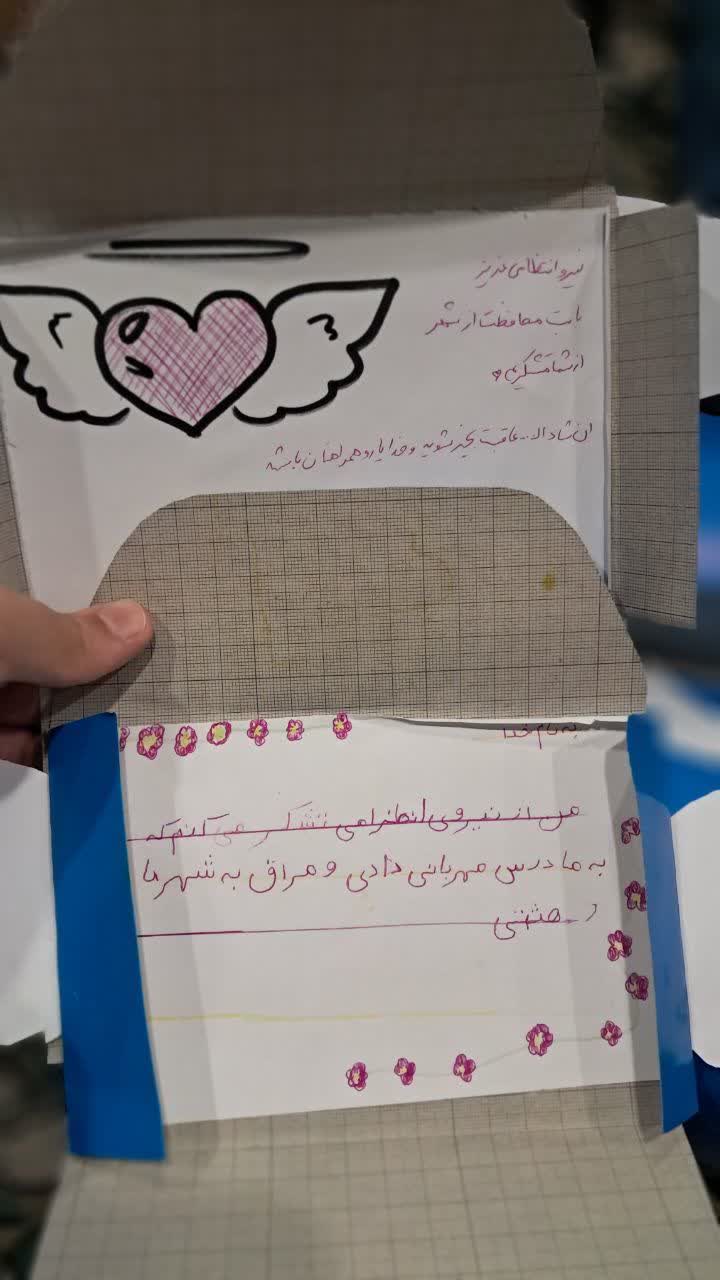 نیرو انتظامی عزیز
بابت محافظت از شهر
از شما متشکریم
ان شاء الله عاقبت بخیر شوید و خدا یار و همراهتان باشه
به نام خدا
من از نیروی انطزامی تشکر می کنم که
به ما درس مهربانی دادی و مراق به شهر ما
هثتنی